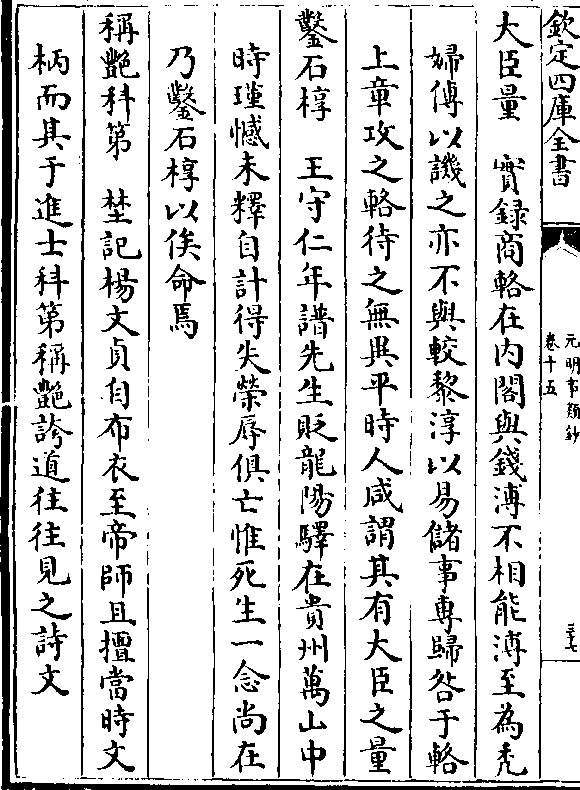 欽定四庫全書
元明事類鈔
卷十五
三十七
大臣量　實録商輅在内閣與錢溥不相能溥至為禿
婦傳以譏之亦不與較黎淳以易儲事專歸咎于輅
上章攻之輅待之無異平時人咸謂其有大臣之量
鑿石椁　王守仁年譜先生貶龍陽驛在貴州萬山中
時瑾憾未釋自計得失榮辱俱亡惟死生一念尚在
乃鑿石椁以俟命焉
稱艶科第　埜記楊文貞自布衣至帝師且擅當時文
柄而其于進士科第稱艶誇道往往見之詩文